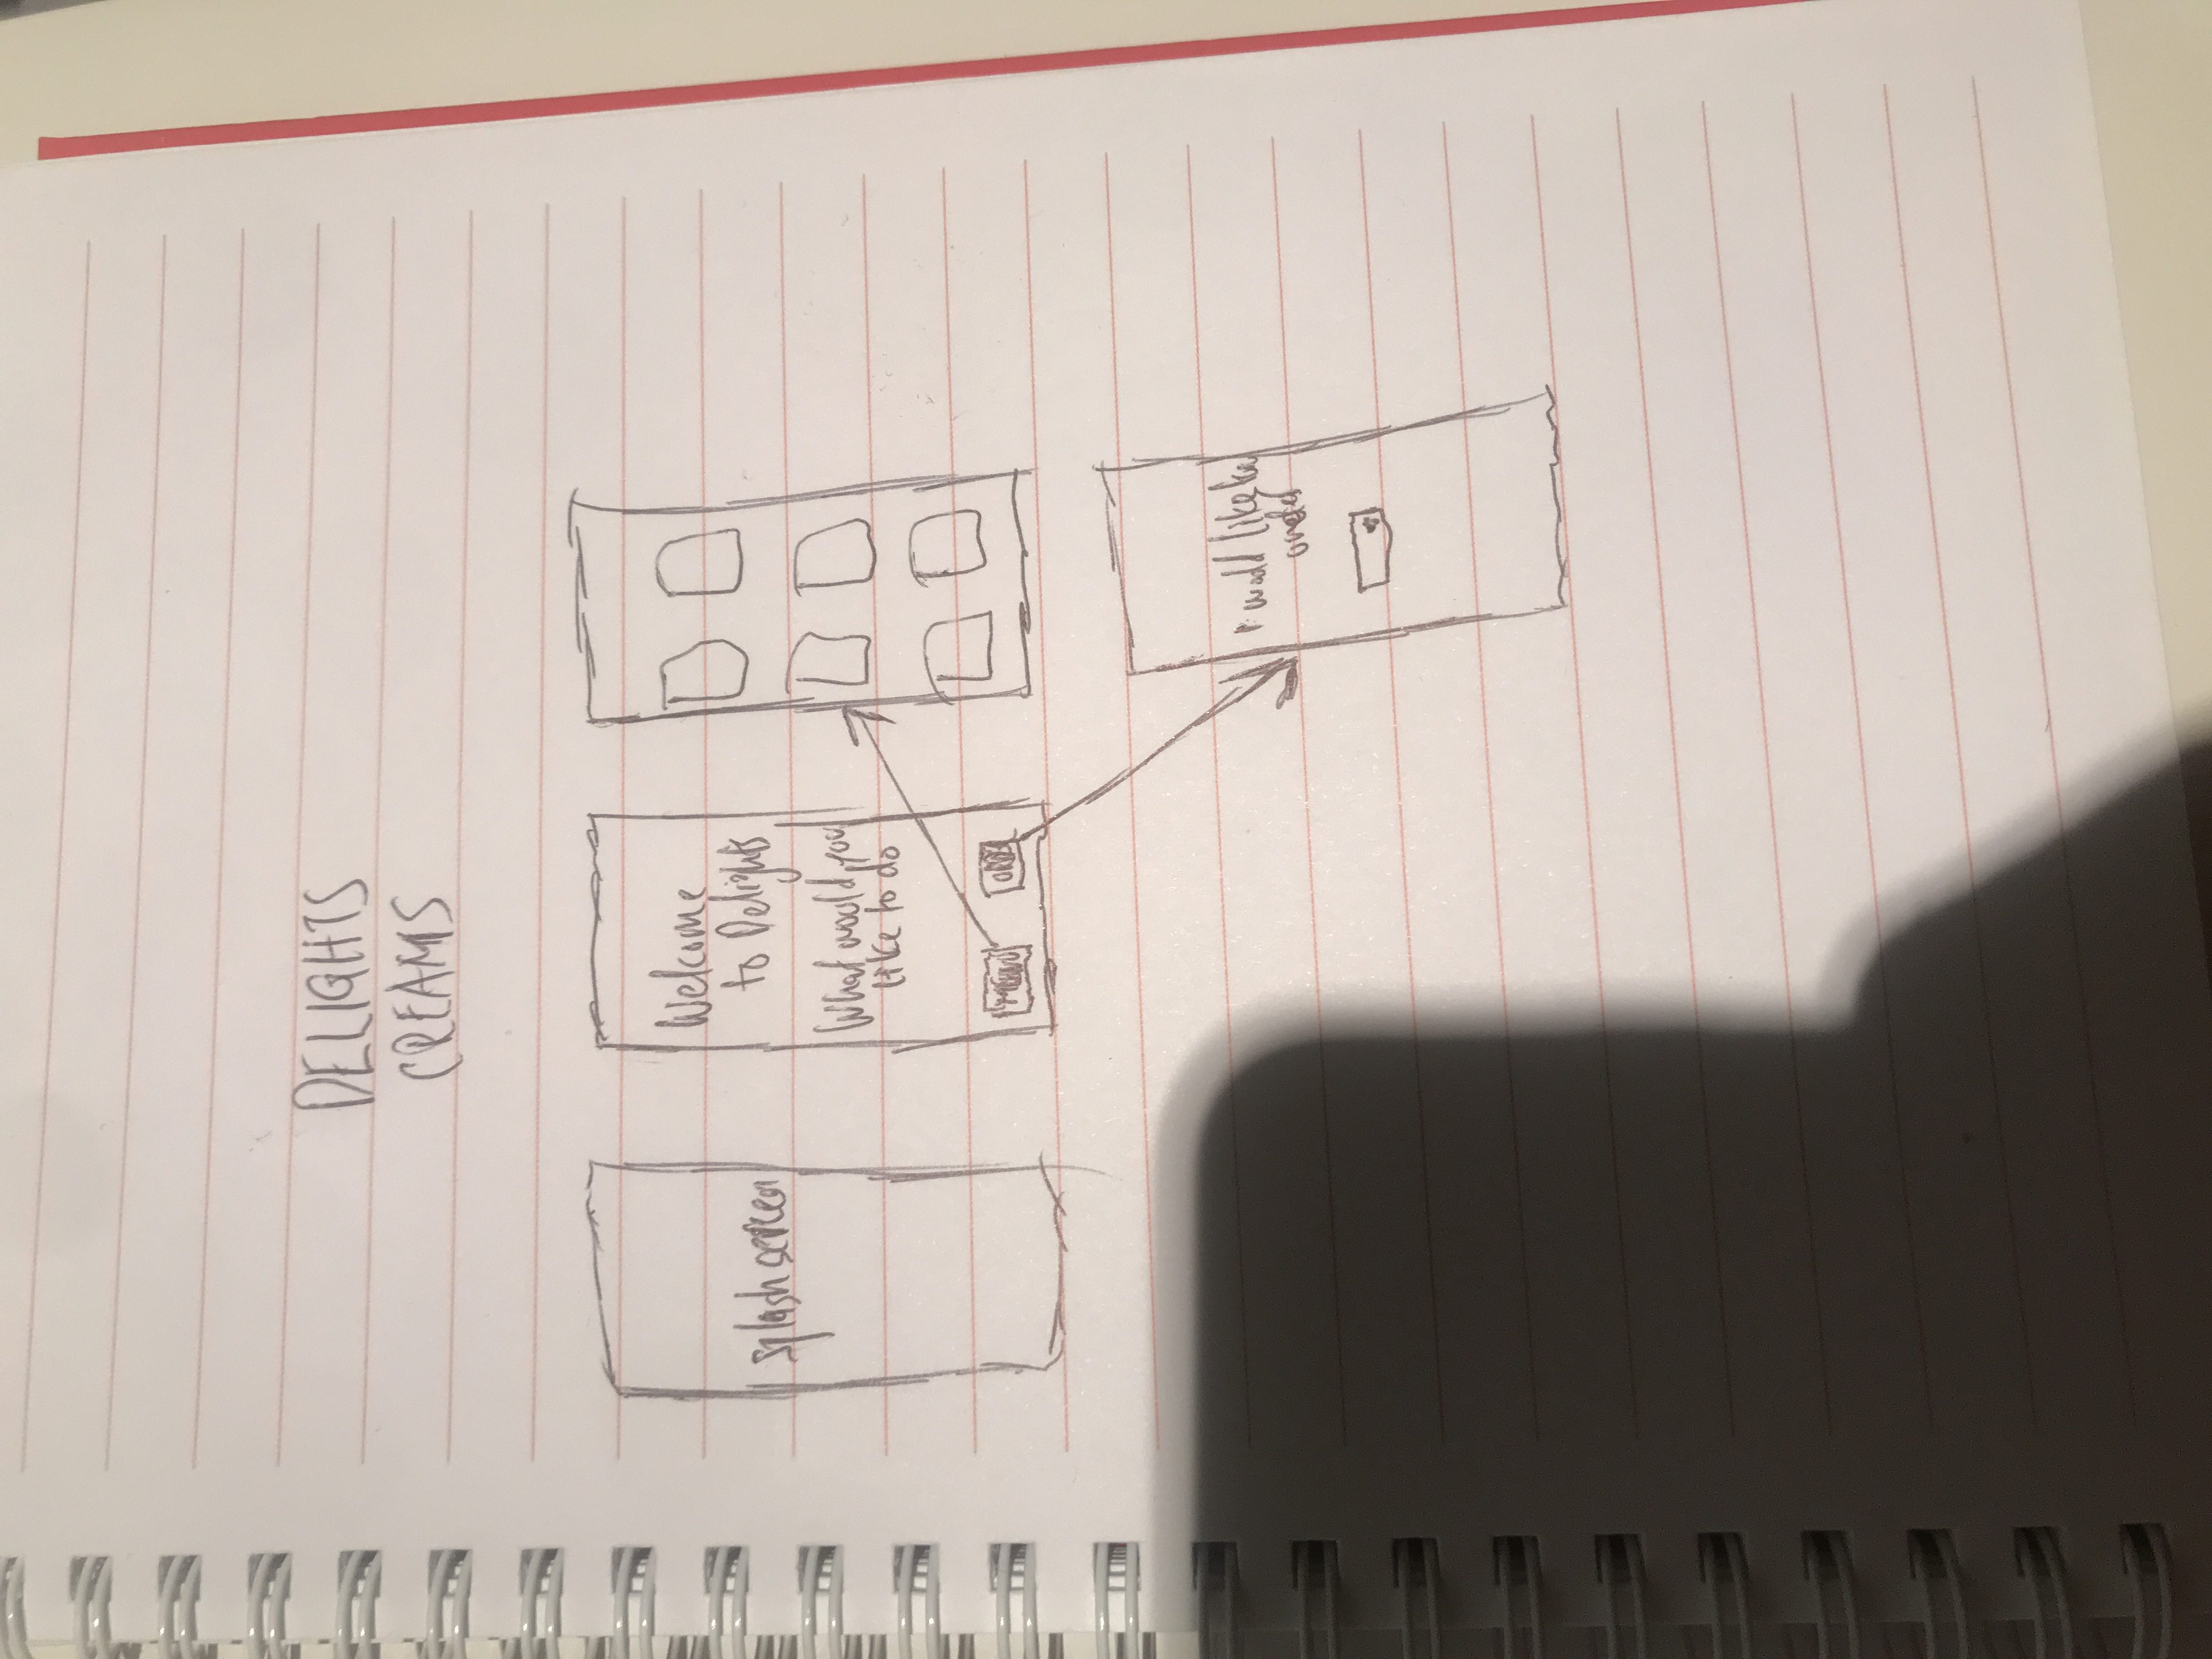 DELIGHTS
CREAMS
splash screen
Welcome
to Delights
What would you
like to do
MENU
I would like to
order